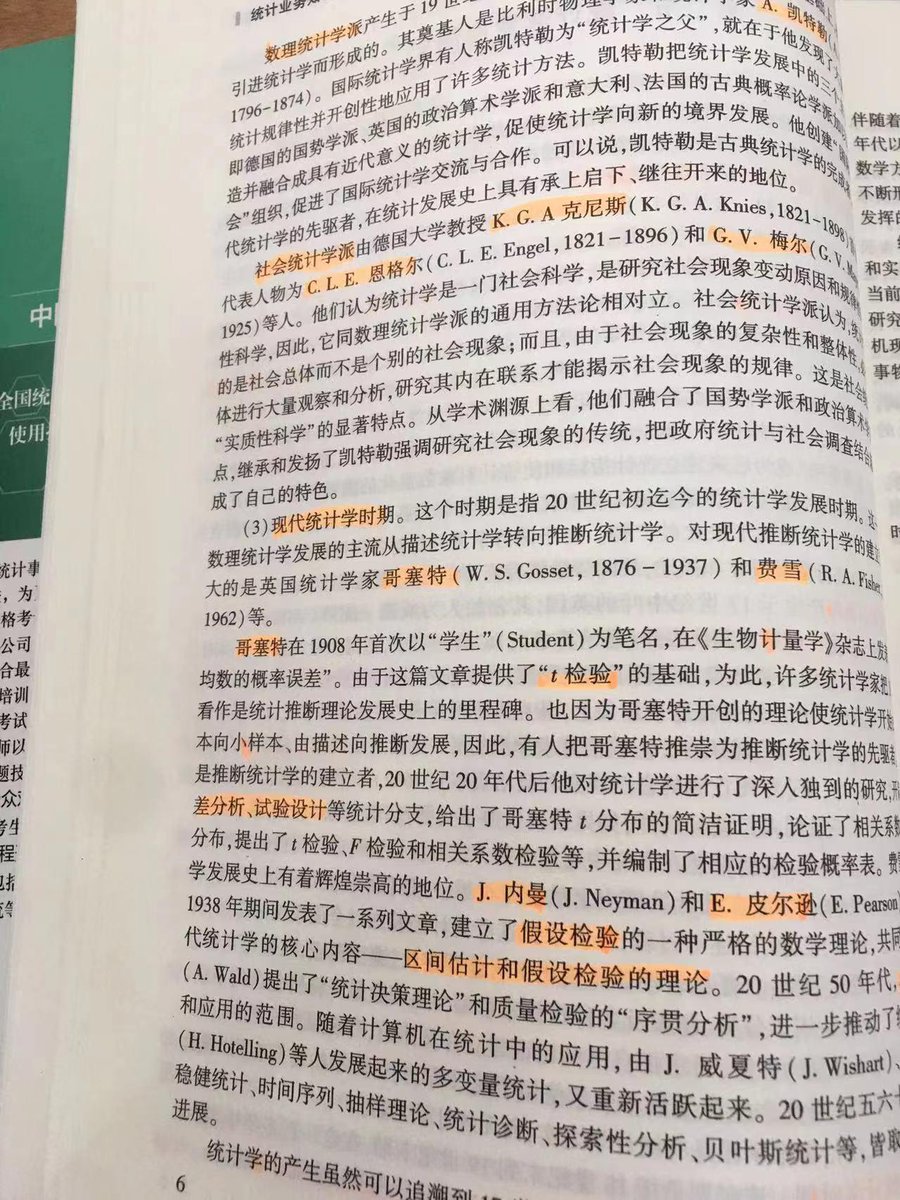 统计业务知
数理统计学派产生于19世纪
引进统计学而形成的。其奠基人是比利时物理学家和统计学家A. 凯特勒(
1796-1874)。国际统计学界有人称凯特勒为“统计学之父”,就在于他发现了大
统计规律性并开创性地应用了许多统计方法。凯特勒把统计学发展中的三个
即德国的国势学派、英国的政治算术学派和意大利、法国的古典概率论学派加
造并融合成具有近代意义的统计学,促使统计学向新的境界发展。他创建“国
会”组织,促进了国际统计学交流与合作。可以说,凯特勒是古典统计学的完成
代统计学的先驱者,在统计发展史上具有承上启下、继往开来的地位。
社会统计学派由德国大学教授K. G. A克尼斯(K. G. A. Knies,1821-1898)
代表人物为C. L. E. 恩格尔(C. L. E. Engel,1821-1896)和G. V. 梅尔(G. V. M
1925)等人。他们认为统计学是一门社会科学,是研究社会现象变动原因和规律
性科学,因此,它同数理统计学派的通用方法论相对立。社会统计学派认为,统
的是社会总体而不是个别的社会现象;而且,由于社会现象的复杂性和整体性,
体进行大量观察和分析,研究其内在联系才能揭示社会现象的规律。这是社会
“实质性科学”的显著特点。从学术渊源上看,他们融合了国势学派和政治算术
点,继承和发扬了凯特勒强调研究社会现象的传统,把政府统计与社会调查结合
成了自己的特色。
(3)现代统计学时期。这个时期是指20世纪初迄今的统计学发展时期。这
数理统计学发展的主流从描述统计学转向推断统计学。对现代推断统计学的建立
大的是英国统计学家哥塞特(W. S. Gosset, 1876-1937) 和费雪(R. A. Fisher,
1962)等。
哥塞特在1908年首次以“学生”(Student)为笔名,在《生物计量学》杂志上发表
均数的概率误差”。由于这篇文章提供了“t检验”的基础,为此,许多统计学家把
看作是统计推断理论发展史上的里程碑。也因为哥塞特开创的理论使统计学开始
本向小样本、由描述向推断发展,因此,有人把哥塞特推崇为推断统计学的先驱者,
是推断统计学的建立者,20世纪20年代后他对统计学进行了深入独到的研究,开
差分析、试验设计等统计分支,给出了哥塞特t分布的简洁证明,论证了相关系数
分布,提出了t检验、F检验和相关系数检验等,并编制了相应的检验概率表。费
学发展史上有着辉煌崇高的地位。J. 内曼(J. Neyman)和E. 皮尔逊(E. Pearson)
1938年期间发表了一系列文章,建立了假设检验的一种严格的数学理论,共同
代统计学的核心内容——区间估计和假设检验的理论。20世纪50年代,
(A. Wald)提出了“统计决策理论”和质量检验的“序贯分析”,进一步推动了统
和应用的范围。随着计算机在统计中的应用,由J. 威夏特(J. Wishart)、
(H. Hotelling)等人发展起来的多变量统计,又重新活跃起来。20世纪五六十
稳健统计、时间序列、抽样理论、统计诊断、探索性分析、贝叶斯统计等,皆取
进展。
统计学的产生虽然可以追溯到17
6
中
全国统
使用
统计事
,为
格考
公司
合最
培训
考试
师以
题技
众对
考生
程
包括
等
伴随着
年代以
数学方
不断形
发挥的
和实
当前
研究
机现
事物